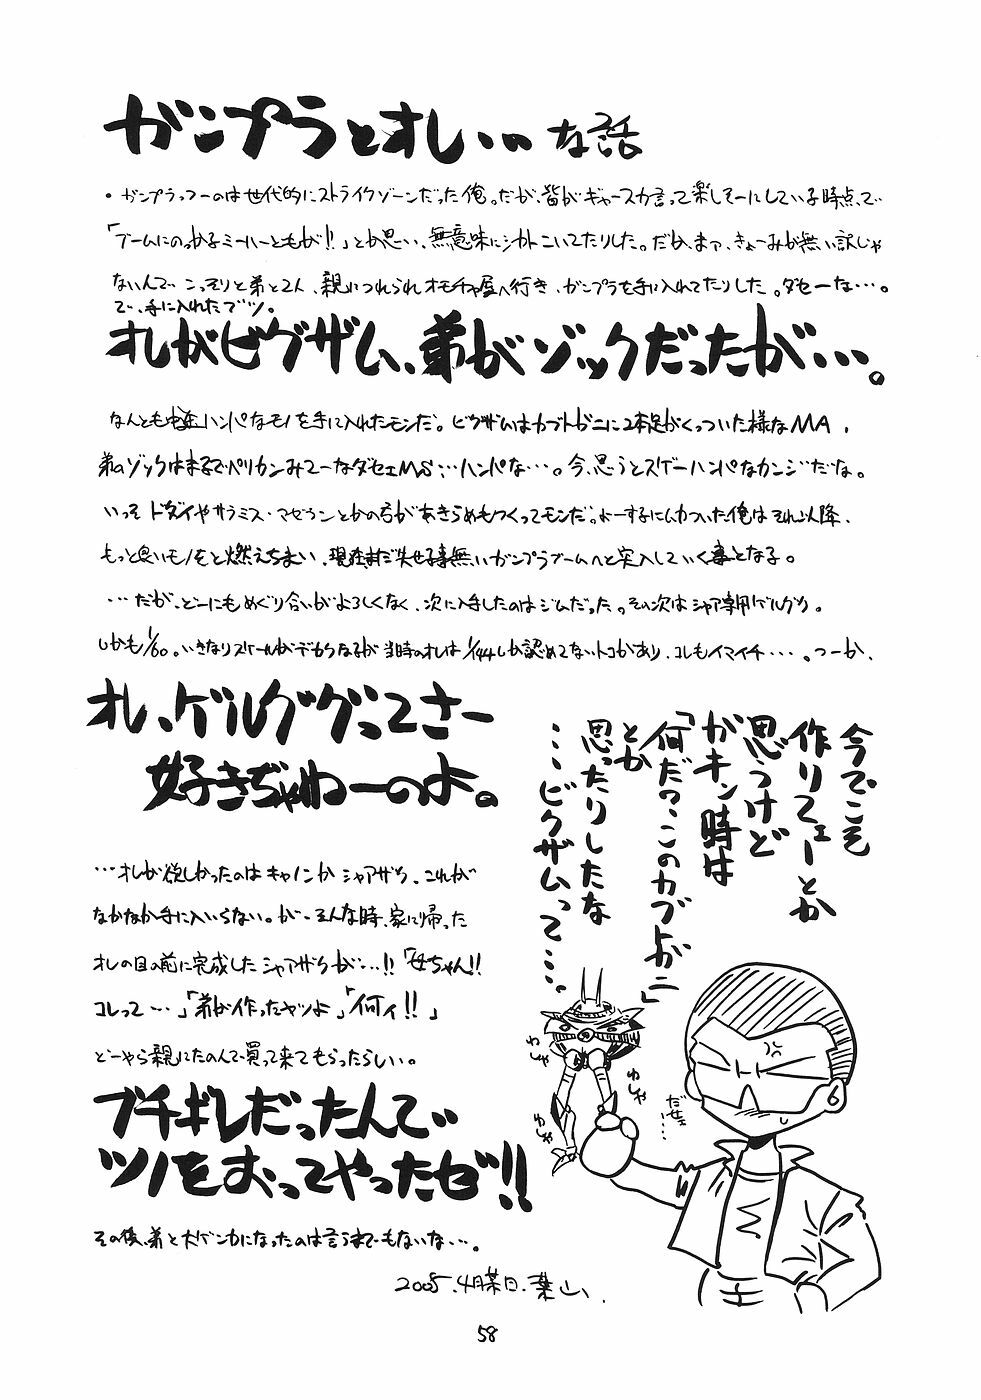 ガンプラとオレ・・・な話
・ガンプラっつーのは世代的にストライクゾーンだった俺。だが、皆がギャースカ言って楽しそーにしている時点で
「ブームにのっかるミーハーどもが!!」とか思い、無意味にシカトこいてたりした。だが、まァ、きょーみが無い訳じゃ
ないんで こっそりと弟と2人、親につれられオモチャ屋へ行き、ガンプラを手に入れてたりした。ダセーな・・・。
で、手に入れたブツ。
オレがビグザム、弟がゾックだったが・・・。
なんとも中途ハンパなモノを手に入れたモンだ。ビグザムはカブトガニに2本足がくっついた様なMA、
弟のゾックはまるでペリカンみてーなダセェMS・・・ハンパな・・・。今、思うとスゲーハンパなカンジだな。
いっそ ドダイやサラミス・マゼランとかの方があきらめもつくってモンだ。よーするにムカついた俺はそれ以降、
もっと良いモノをと燃えちまい、現在まだ失せる事無いガンプラブームへと突入していく事となる。
・・・だが、どーにもめぐり合いがよろしくなく、次に入手したのはジムだった。その次はシャア専用ゲルググ。
しかも1/60。いきなりスケールがデカくなるが当時のオレは1/144しか認めてないトコがあり、コレもイマイチ・・・・。つーか、
オレ、ゲルググってさー
好きぢゃねーのよ。
・・・オレが欲しかったのはキャノンかシャアザク、これが
なかなか手に入いらない。が、そんな時、家に帰った
オレの目の前に完成したシャアザクが・・・!!「母ちゃん!!
コレって・・・」「弟が作ったヤツよ」「何ィ!!」
どーやら親にたのんで買って来てもらったらしい。
ブチギレだったんで
ツノをおってやったゼ!!
その後、弟と大ゲンカになったのは言うまでもないな・・・。
2005.4月某日.葉山、
今でこそ
作りてェーとか
思うけど
ガキン時は
「何だ?このカブトガニ」
とか
思ったりしたな
・・・ビグザムって・・・。
わしゃ
わしゃ
わしゃ
わしゃ
だせェ・・・
58